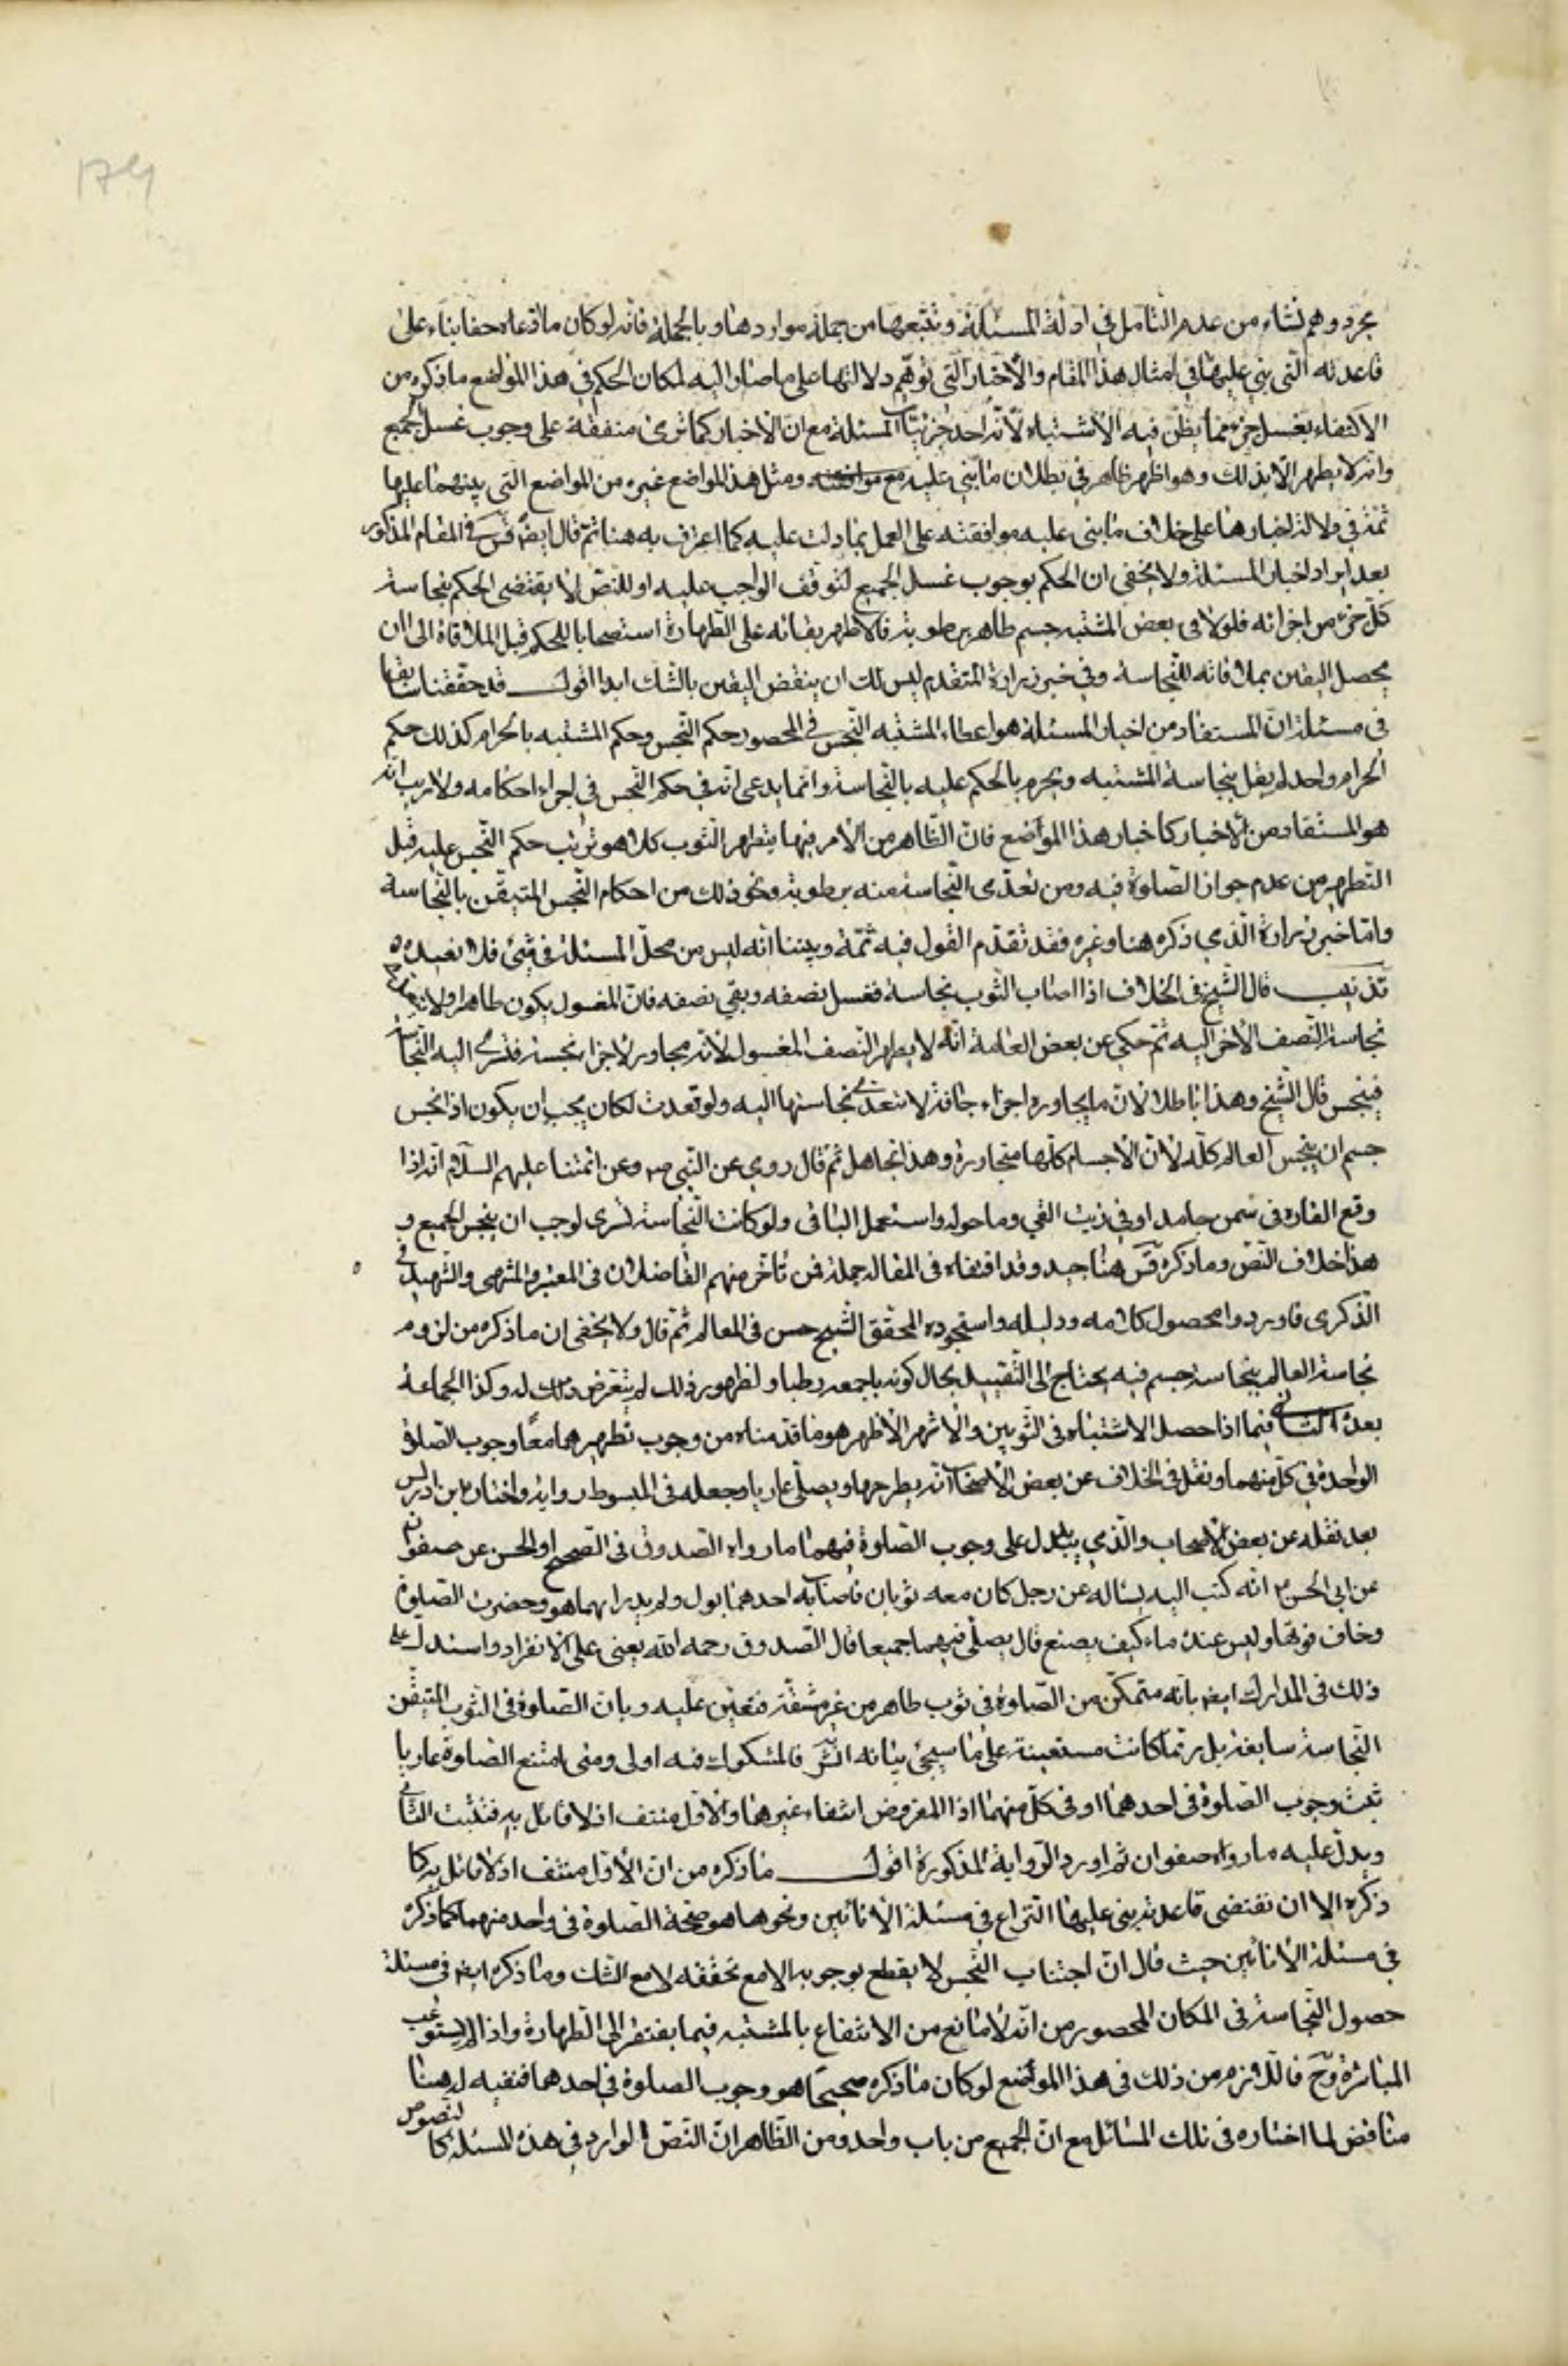 مجرد وهم نشاء من عدم التأمل في ادلة المسئلة وتتبعها من جملة مواردها وبالجملة فانه لو كان ما ادعاه حقا بناء على
قاعدته التي بني عليها في امثال هذا المقام والأخبار التي توهم دلالتها على ما صار اليه لكان الحكم في هذا المواضع ما ذكره من
الاكتفاء بغسل جزء مما يظن فيه الاشتباه لأنه احد جزئيات المسئلة مع ان الاخبار كما ترى متفقة على وجوب غسل الجميع
وانه لا يطهر الا بذلك وهو اظهر ظاهر في بطلان ما بني عليه ومثل هذا المواضع غيره من المواضع التي بينهنا عليها
ثمة في دلالة اخبارها على خلاف ما بنى عليه موافقته على العمل بما دلت عليه كما اعترف به هنا ثم قال ايضا قس في المقام المذكور
بعد ايراد اخبار المسئلة ولا يخفى ان الحكم بوجوب غسل الجميع لتوقف الواجب عليه او للنص لا يقتضي الحكم بنجاسة
كل جزء من اجزائه فلو لاقى بعض المشتبه جسم طاهر برطوبة فالاظهر بقائه على الطهارة استصحابا للحكم قبل الملاقاة الى ان
يحصل اليقين بملاقاته للنجاسة وفي خبر زرارة المتقدم ليس لك ان ينقض اليقين بالشك ابدا اقول قد حققنا سابقا
في مسئلة ان المستفاد من اخبار المسئلة هو اعطاء المشتبه النجس في المحصور حكم النجس وحكم المشتبه بالحرام كذلك حكم
الحرام واحد لم يقل بنجاسة المشتبه ويجرم بالحكم عليه بالنجاسة وانما يدعى انه في حكم النجس في اجراء احكامه ولا ريب انه
هو المستفاد من الاخبار كاخبار هذا المواضع فان الظاهر من الامر فيها بتطهير الثوب كلا هو ترتب حكم النجس عليه قبل
التطهير من عدم جواز الصلوة فيه ومن تعدى النجاسة منه برطوبة ونحو ذلك من احكام النجس المتيقن بالنجاسة
واما خبر زرارة الذي ذكره هنا وغيره فقد تقدم القول فيه ثمة وبيننا انه ليس من محل المسئلة في شئ فلا نعيده
تذنيب قال الشيخ في الخلاف اذا اصاب الثوب نجاسة فغسل نصفه وبقي نصفه فان المغسول يكون طاهرا ولا يتعدى
نجاسة النصف الاخر اليه ثم حكى عن بعض العامة انه لا يطهر النصف المغسول لانه مجاور لاجزاء نجسة فتسرى اليه النجاسة
فينجس قال الشيخ وهذا باطل لان ما يجاوره اجزاء جافة لا تتعدى نجاستها اليه ولو تعدت لكان يجب ان يكون اذا نجس
جسم ان ينجس العالم كله لان الاجسام كلها متجاورة وهذا تجاهل ثم قال روي عن النبي ص وعن ائمتنا عليهم السلام انه اذا
وقع الفارة في سمن جامد او في زيت القي وما حوله واستعمل الباقي ولو كانت النجاسة تسرى لوجب ان ينجس الجميع و
هذا خلاف النص وما ذكره قس هنا جيد وقد اقتفاه في المقالة جملة ممن تاخر منهم الفاضلان في المعتبر والمنتهى والشهيد في
الذكرى فاوردوا محصول كلامه ودليله واستجوده المحقق الشيخ حسن في المعالم ثم قال ولا يخفى ان ما ذكره من لزوم
نجاسة العالم بنجاسة جسم فيه يحتاج الى التقييد بحال كونه باجمعه رطبا ولظهور ذلك لم يتعرض له وكذا الجماعة
بعده الثاني فيما اذا حصل الاشتباه في الثوبين والاشهر الاظهر هو ما قدمناه من وجوب تطهيرهما معا ووجوب الصلوة
الواحدة في كل منهما ونقل في الخلاف عن بعض الاصحاب انه يطرحها ويصلى عاريا وجعله في المبسوط رواية واختاره ابن ادريس
بعد نقله عن بعض الاصحاب والذي يدل على وجوب الصلوة فيهما ما رواه الصدوق في الصحيح او الحسن عن صفوان
عن ابي الحسن ع انه كتب اليه يساله عن رجل كان معه ثوبان فاصاب احدهما بول ولم يدر ايهما هو وحضرت الصلوة
وخاف فوتها وليس عنده ماء كيف يصنع قال يصلى فيهما جميعا قال الصدوق رحمه الله يعني على الانفراد واستدل على
ذلك في المدارك ايضا بانه متمكن من الصلوة في ثوب طاهر من غير مشقة فتعين عليه وبان الصلوة في الثوب المتيقن
النجاسة سايغة بل ربما كانت متعينة على ما سيجئ بيانه انش فالمشكوك فيه اولى ومتى امتنع الصلوة عاريا
ثبت وجوب الصلوة في احدهما او في كل منهما اذ المفروض انتفاء غيرهما والاول منتف اذ لا قائل به فثبت الثاني
ويدل عليه ما رواه صفوان ثم اورد الرواية المذكورة اقول ما ذكره من ان الاول منتف اذ لا قائل به كما
ذكره الا ان تقتضى قاعدته بنى عليها النزاع في مسئلة الانائين ونحوها هو صحة الصلوة في واحد منهما كما ذكره
في مسئلة الانائين حيث قال ان اجتناب النجس لا يقطع بوجوبه الا مع تحققه لا مع الشك وما ذكره ايضا في مسئلة
حصول النجاسة في المكان المحصور من انه لا مانع من الانتفاع بالمشتبه فيما يفتقر الى الطهارة واذا لم يستوعب
المباشرة وح فاللازم من ذلك في هذا المواضع لو كان ما ذكره صحيحا هو وجوب الصلوة في احدهما فنفيه له هنا
مناقض لما اختاره في تلك المسائل مع ان الجميع من باب واحد ومن الظاهر ان النص الوارد في هذه المسئلة كالنصوص